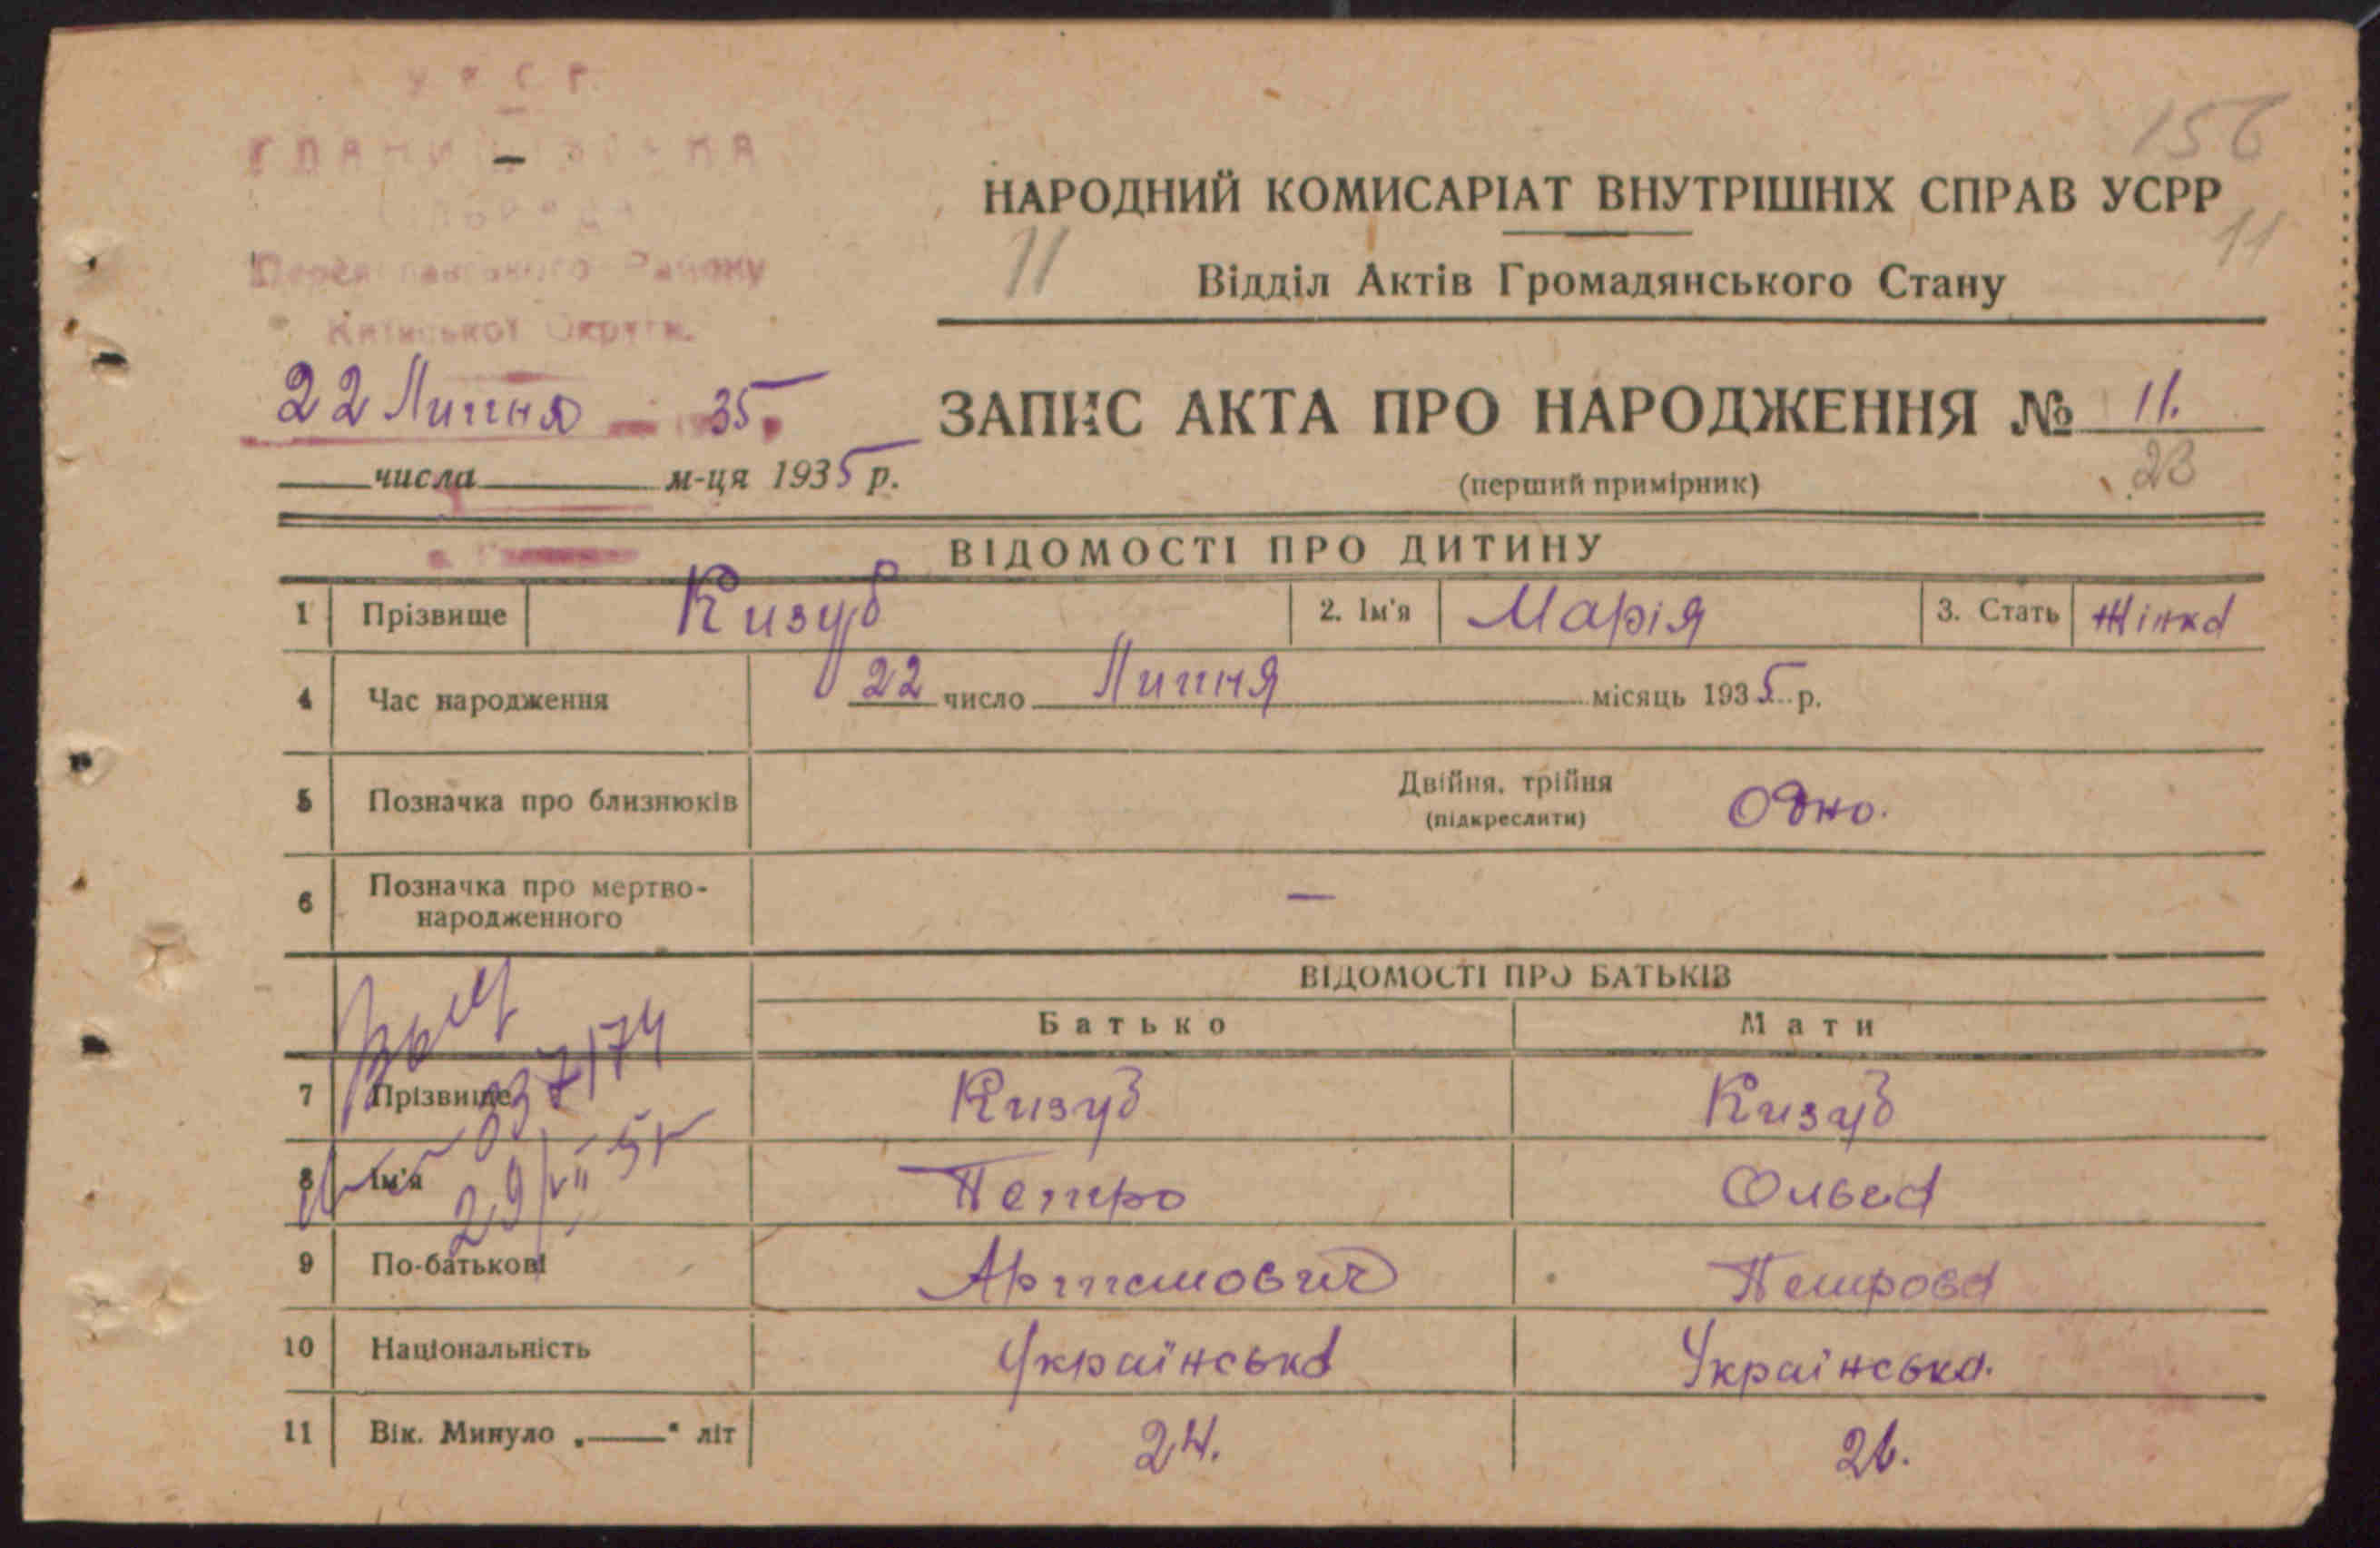 У С Р Р
Району
Київської Округи.
156
НАРОДНИЙ КОМИСАРІАТ ВНУТРІШНІХ СПРАВ УСРР
11
11
Відділ Актів Громадянського Стану
22 Липня 35
ЗАПИС АКТА ПРО НАРОДЖЕННЯ № 11.
числа м-ця 1935 р.
(перший примірник)
23
ВІДОМОСТІ ПРО ДИТИНУ
1 Прізвище Кизуб 2. Ім'я Марія 3. Стать Жінка
4 Час народження 22 число Липня місяць 1935 р.
5 Позначка про близнюків Двійня, трійня (підкреслити) Одно.
6 Позначка про мертво-
народженного —
ВІДОМОСТІ ПРО БАТЬКІВ
Батько Мати
7 Прізвище Кизуб Кизуб
8 Ім'я Петро Ольга
9 По-батькові Артемович Петровa
10 Національність Українська Українська.
11 Вік. Минуло „—" літ 24. 26.